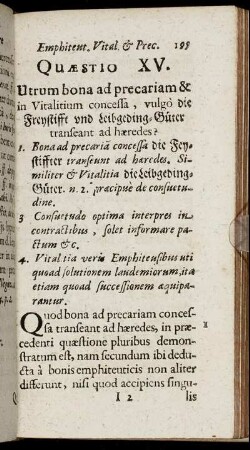 Emphiteut. Vital. & Prec. 199
QUÆSTIO XV.
Utrum bona ad precariam &
in Vitalitium concessa, vulgò die
Freystifft vnd Leibgeding-Güter
transeant ad hæredes?
1. Bona ad precariã concessa die Frey-
stiffter transeunt ad hæredes. Si-
militer & Vitalitia die Leibgeding-
Güter. n. 2. præcipuè de consuetu-
dine.
3 Consuetudo optima interpres in
contractibus, solet informare pa-
ctum &c.
4. Vitalitia veris Emphiteusibus uti
quoad solutionem laudemiorum, ita
etiam quoad successionem æquipa-
rantur.
Quod bona ad precariam conces-
sa transeant ad hæredes, in præ-
cedenti quæstione pluribus demon-
stratum est, nam secundum ibi dedu-
cta à bonis emphiteuticis non aliter
differunt, nisi quod accipiens singu-
1
I 2 lis